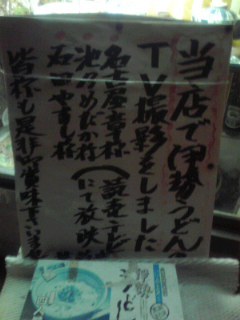 当店で伊勢うどんの
TV撮影をしました
名古屋章様
池乃めだか様
石田やすし様
(読売テレビ
にて放映
皆様も是非ご賞味下さいませ
伊勢
うどん